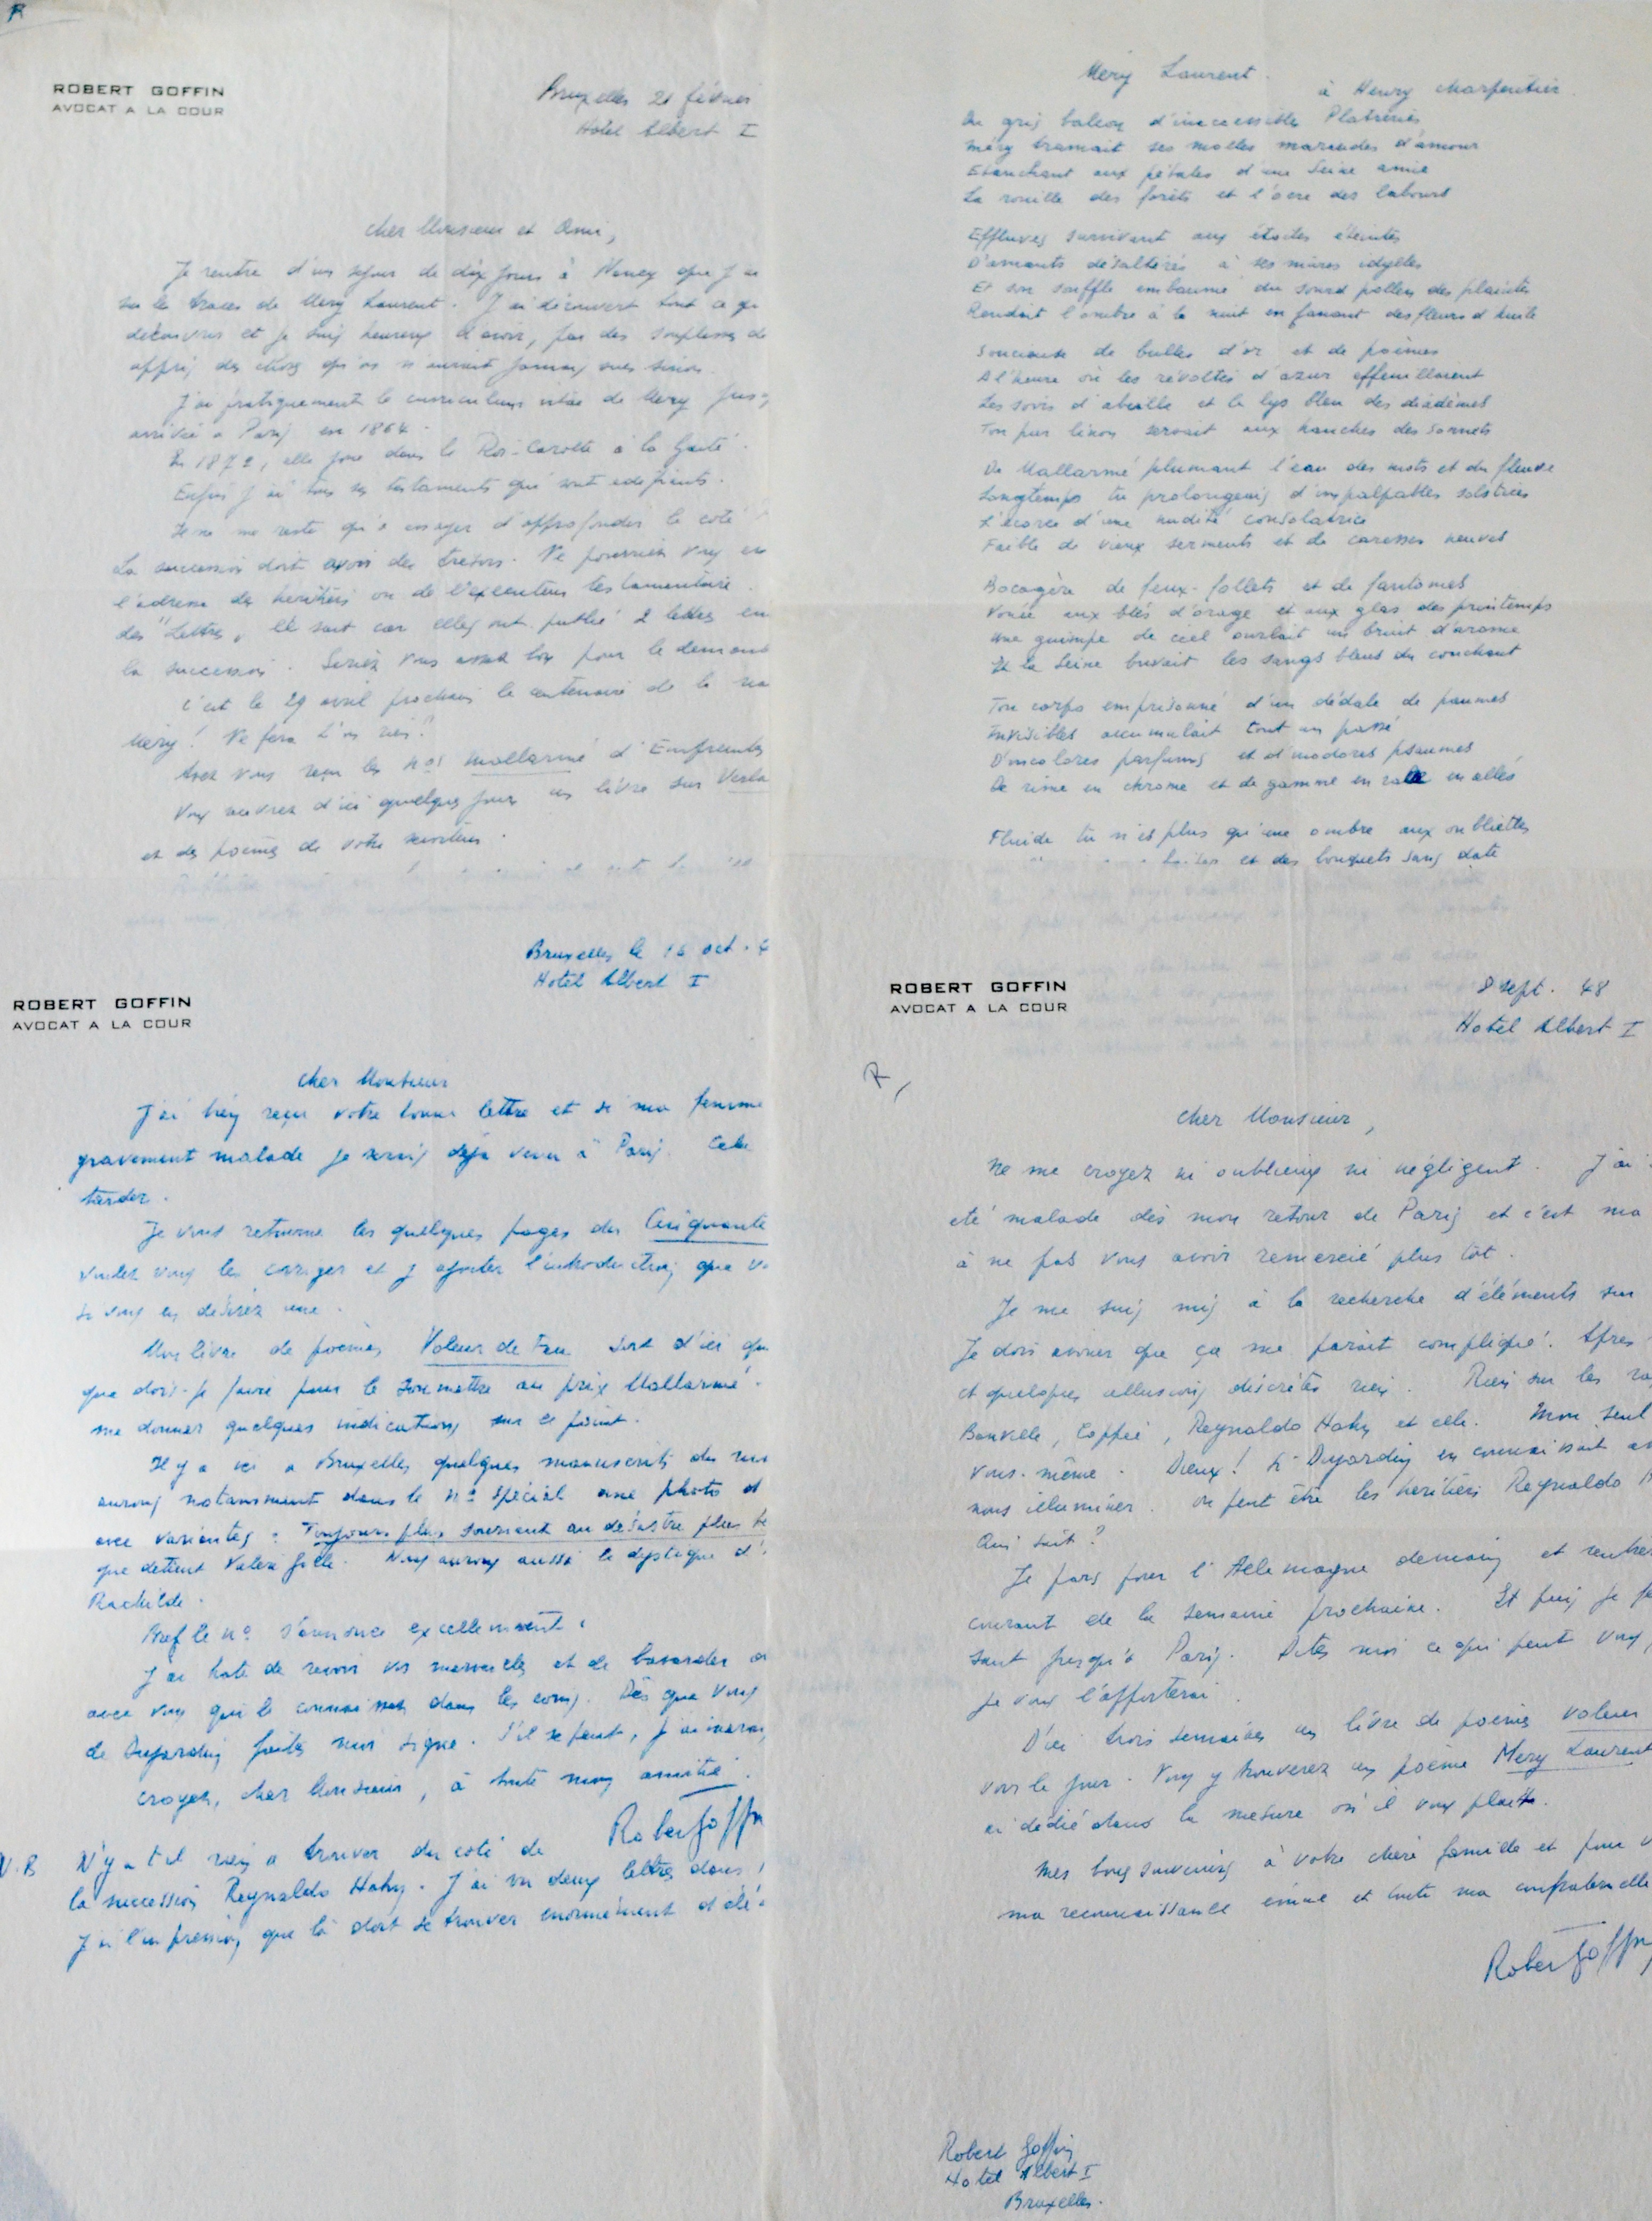 R
ROBERT GOFFIN
AVOCAT A LA COUR
Bruxelles 21 février
Hotel Albert I
Cher Monsieur et Ami,
Je rentre d'un séjour de dix jours à Nancy que j'ai
sur les traces de Mery Laurent. J'ai découvert tout ce qu
découvrir et je suis heureux d'avoir, par des souplesses de
appris des choses qu'on n'aurait jamais sues sinon.
J'ai pratiquement le curriculum vitae de Mery jusq
arrivée à Paris en 1864.
En 1872, elle joue dans le Roi-Carotte à la Gaité.
Enfin j'ai tous ses testaments qui sont édifiants.
Il ne me reste qu'à essayer d'approfondir le coté
La succession doit avoir des trésors. Ne pourriez vous en
l'adresse des héritiers ou de l'exécuteur testamentaire.
des "Lettres" le sait car elles ont publié 2 lettres en
la succession. Seriez vous assez bon pour le demand
C'est le 29 avril prochain le centenaire de la na
Mery! Ne fera t'on rien?
Avez vous reçu les nos Mallarmé d'Empreintes
Vous recevrez d'ici quelques jours un livre sur Verla
et des poèmes de votre serviteur.
Mery Laurent.
à Henry Charpentier.
Du gris balcon d'inaccessibles Platreries
Méry tramait ses molles maraudes d'amour
Etanchant aux pétales d'une Seine amie
La rouille des forêts et l'ocre des labours
Effluves survivant aux étoiles éteintes
D'amants désaltérés à ses mûres idylles
Et son souffle embaumé du sourd pollen des plaintes
Rendait l'ombre à la nuit en fanant des fleurs d'huile
Soucieuse de bulles d'or et de poèmes
A l'heure où les révoltés d'azur effeuillaient
Les soirs d'abeille et le lys bleu des diadèmes
Ton pur linon servait aux hanches des sonnets
De Mallarmé plumant l'eau des mots et du fleuve
Longtemps tu prolongeais d'impalpables solstices
L'écorce d'une nudité consolatrice
Faible de vieux serments et de caresses neuves
Bocagère de feux-follets et de fantomes
Vouée aux blés d'orage et aux glas des printemps
Une guimpe de ciel ourlait un bruit d'arome
Et la Seine buvait les sangs bleus du couchant
Ton corps emprisonné d'un dédale de paumes
Invisibles accumulait tout un passé
D'incolores parfums et d'inodores psaumes
De rime en chrome et de gamme en en allés
Fluide tu n'es plus qu'une ombre aux oubliettes
et des bouquets sans date
Bruxelles le 16 oct. 4
Hotel Albert I
ROBERT GOFFIN
AVOCAT A LA COUR
Cher Monsieur
J'ai bien reçu votre bonne lettre et si ma femme
gravement malade je serais déjà venu à Paris. Cela
tarder.
Je vous retourne les quelques pages des Cinquante
voulez vous les corriger et y ajouter l'introduction que v
si vous en désirez une.
Mon livre de poèmes Voleur de Feu sort d'ici qu
que dois-je faire pour le soumettre au prix Mallarmé.
me donner quelques indications sur ce point.
Il y a ici à Bruxelles quelques manuscrits du
aurons notamment dans le no spécial une photo d
avec variantes : Toujours plus souriant au désastre plus be
que détient Valère Gille. Nous aurons aussi le dyptique d'
Rachilde.
Bref le no s'annonce excellemment.
J'ai hate de revoir vos merveilles et de bavarder
avec vous qui le connaissez dans les coins. Dès que vous
de Dujardin faites moi signe. S'il se peut, j'aimerais
croyez, cher Monsieur, à toute mon amitié.
Robert Goffin
N.B N'y a t il rien à trouver du coté de
la succession Reynaldo Hahn. J'ai vu deux lettres dans
J'ai l'impression que là doit se trouver enormément d'élé
ROBERT GOFFIN
AVOCAT A LA COUR
8 sept. 48
Hotel Albert I
R
Cher Monsieur,
Ne me croyez ni oublieux ni négligent. J'ai
été malade dès mon retour de Paris et c'est ma
à ne pas vous avoir remercié plus tôt.
Je me suis mis à la recherche d'éléments sur
Je dois avouer que ça me parait compliqué. Apres
et quelques allusions discrètes rien. Rien sur les ra
Banville, Coppée, Reynaldo Hahn et elle. Mon seul
vous-même. Dieux! Si Dujardin en connaissait
nous illuminer. Ou peut être les héritiers Reynaldo H
Qui sait?
Je pars pour l'Allemagne demain et rentre
courant de la semaine prochaine. Et puis je
saut jusqu'à Paris. Dites moi ce qui peut vous
je vous l'apporterai.
D'ici trois semaines un livre de poèmes Voleur
voir le jour. Vous y trouverez un poème Mery Laurent
ai dédié dans la mesure où il vous plait.
Mes bons souvenirs à votre chère famille et pour v
ma reconnaissance émue et toute ma confraternelle
Robert Goffin
Robert Goffin
Hotel Albert I
Bruxelles.